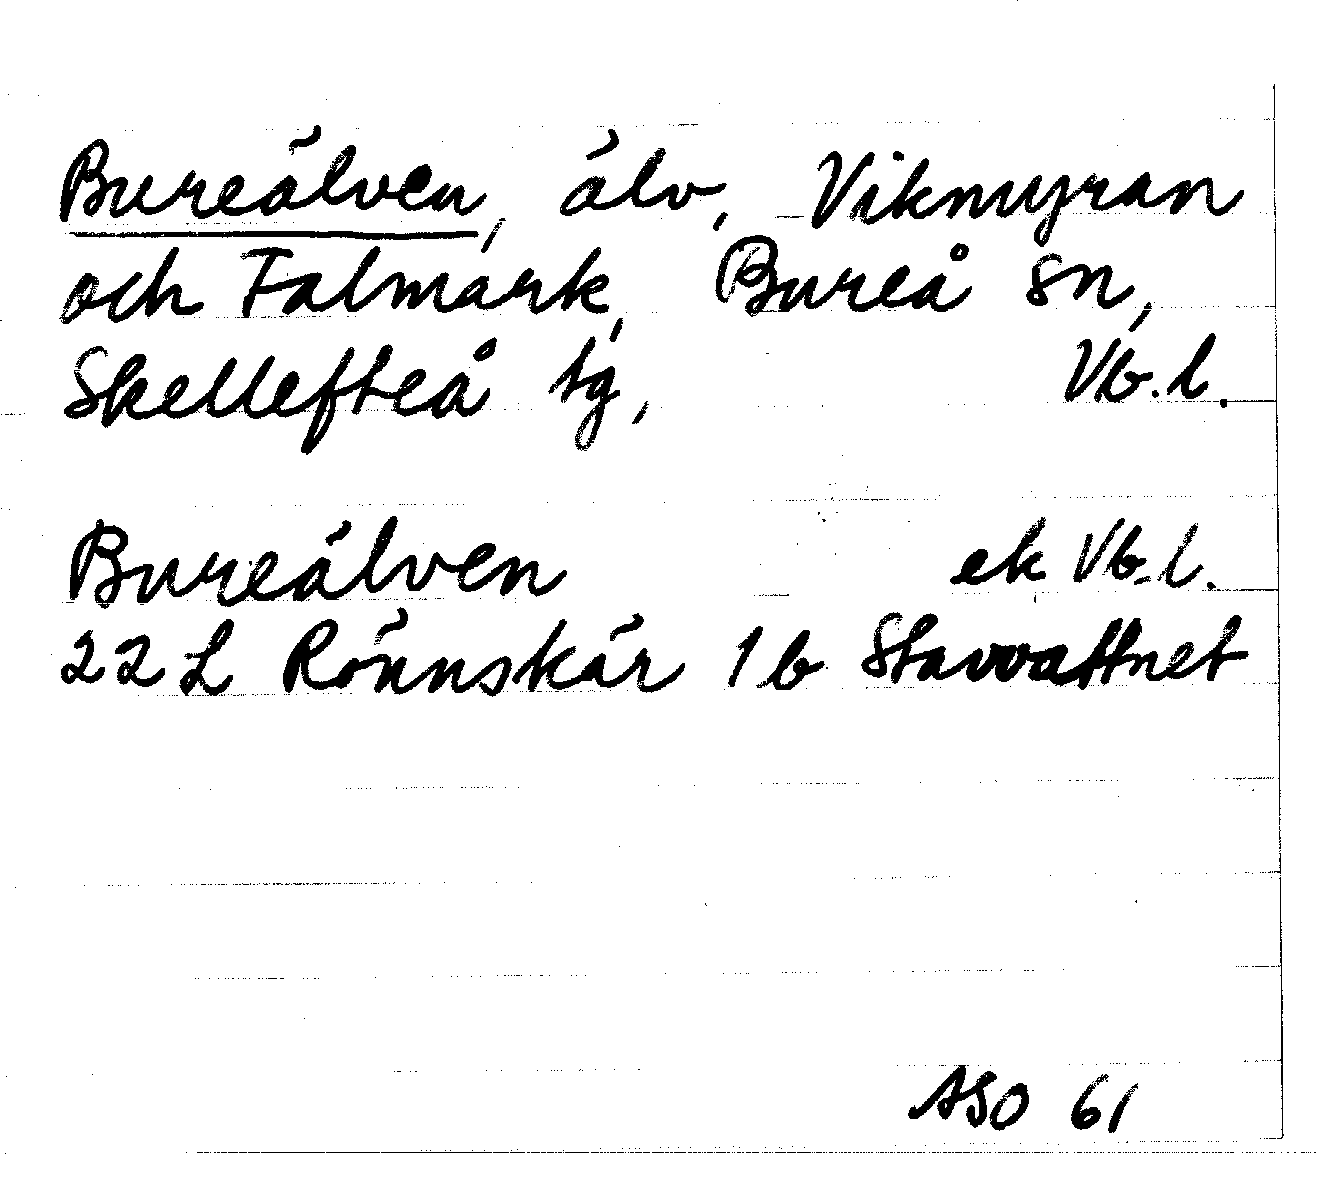 Bureälven, älv, Vikmyran
och Falmark, Bureå sn,
Skellefteå tg, Vb.l.
Bureälven ek Vb.l.
22 L Rönnskär 1 b Stavvattnet
ASO 61